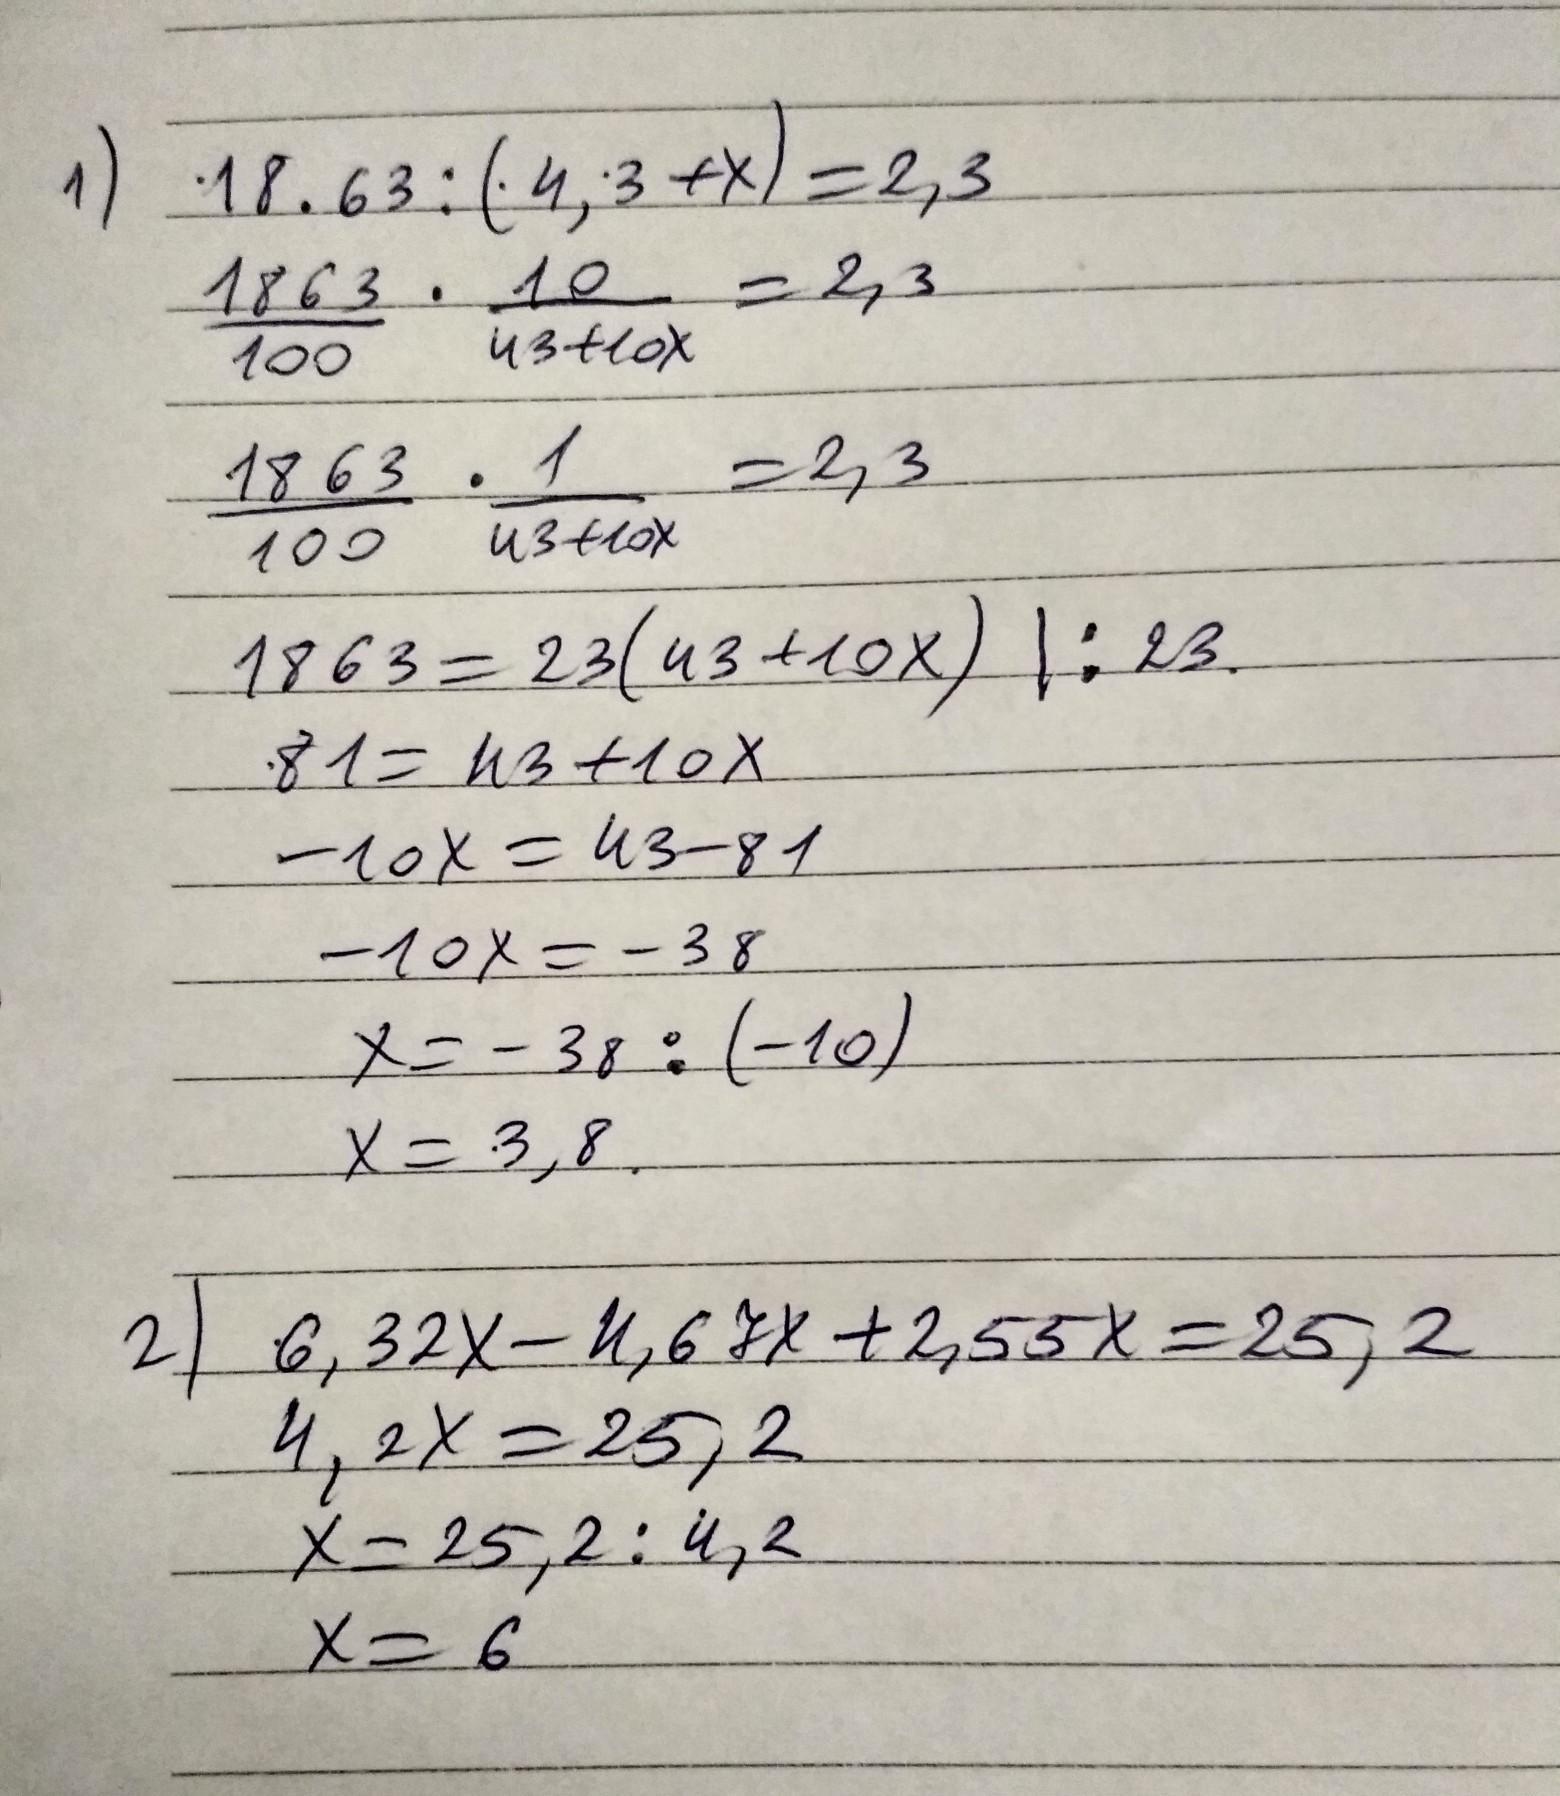 1) 18.63:(4,3+x)=2,3
1863/100 · 10/43+10x =2,3
1863/100 · 1/43+10x =2,3
1863=23(43+10x) |:23.
81=43+10x
-10x=43-81
-10x=-38
x=-38:(-10)
x=3,8.
2) 6,32x-4,67x+2,55x=25,2
4,2x=25,2
x=25,2:4,2
x=6